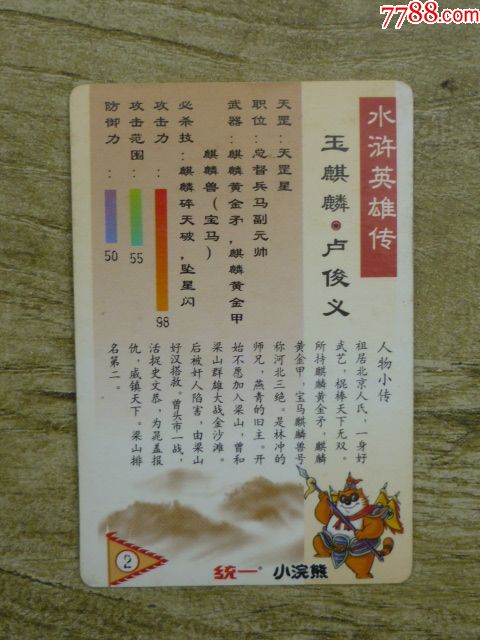 7788.com
中国收藏热线
水浒英雄传
玉麒麟·卢俊义
天罡:天罡星
职位:总督兵马副元帅
武器:麒麟黄金矛,麒麟黄金甲
麒麟兽(宝马)
必杀技:麒麟碎天破,坠星闪
攻击力:
98
攻击范围:
55
防御力:
50
人物小传
祖居北京人氏,一身好
武艺,棍棒天下无双。
所持麒麟黄金矛,麒麟
黄金甲,宝马麒麟兽号
称河北三绝。是林冲的
师兄,燕青的旧主。开
始不愿加入梁山,曾和
梁山群雄大战金沙滩。
后被奸人陷害,由梁山
好汉搭救。曾头市一战,
活捉史文恭,为晁盖报
仇,威镇天下。梁山排
名第二。
2
统一® 小浣熊